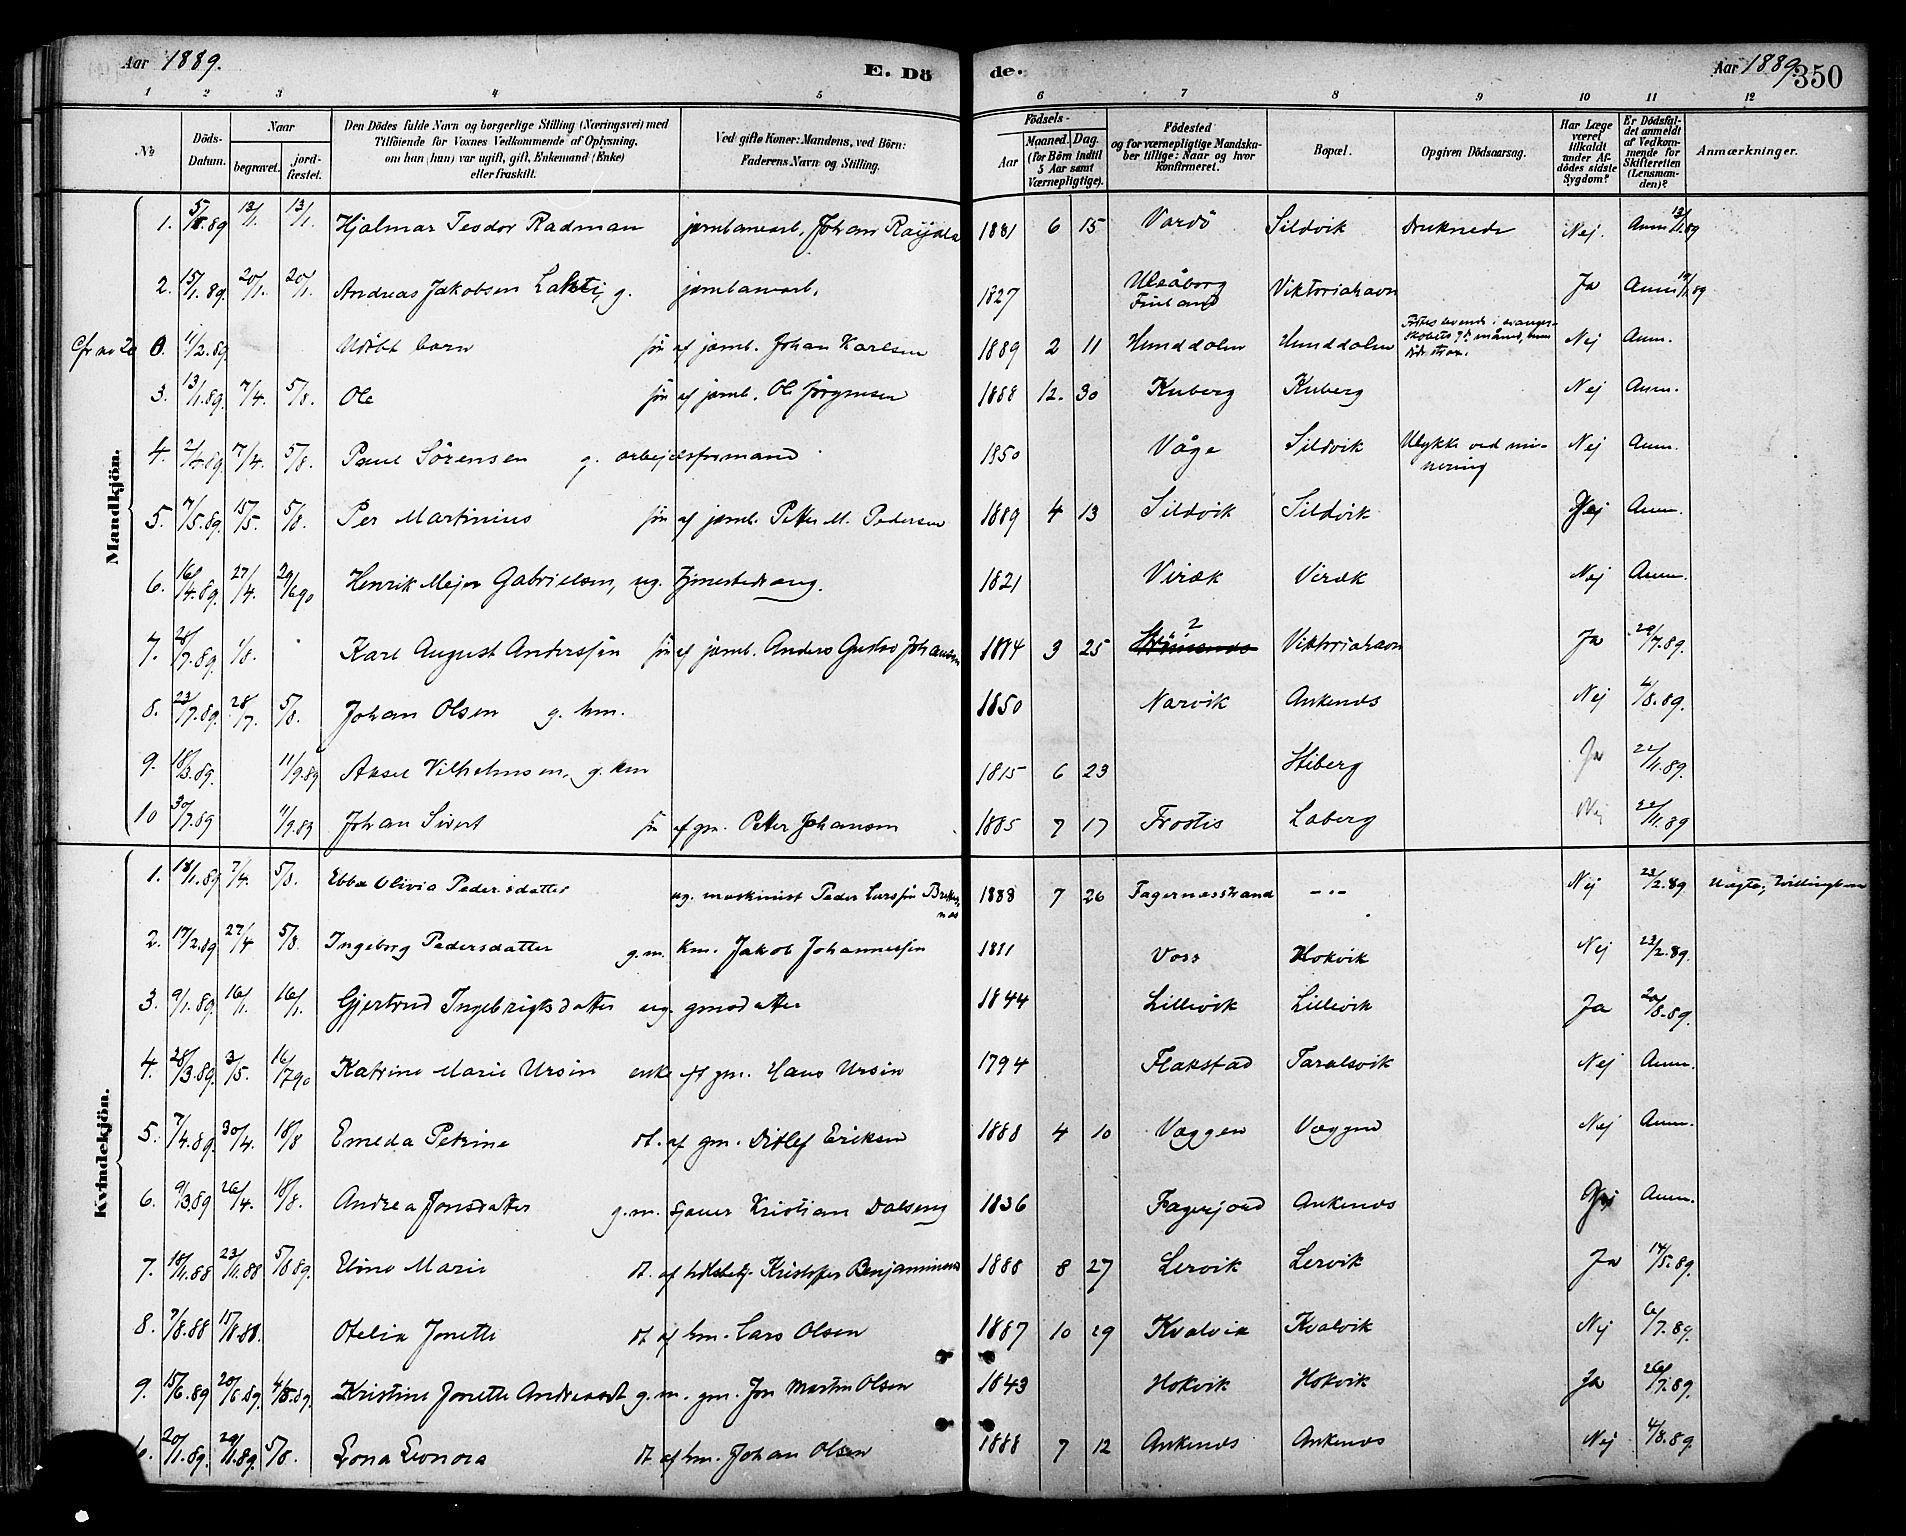 Aar 1889.
E. Dö
de.
Aar 1889.
350
1 2 3 4 5 6 7 8 9 10 11 12
No
Döds-Datum.
Naar
begravet.
jord-fæstet.
Den Dödes fulde Navn og borgerlige Stilling (Næringsvei) med
Tilföiende for Voxnes Vedkommende af Oplysning,
om han (hun) var ugift, gift, Enkemand (Enke)
eller fraskilt.
Ved gifte Koner: Mandens, ved Börn:
Faderens Navn og Stilling.
Födsels-
Aar
Maaned. Dag.
(for Börn indtil
5 Aar samt
Værnepligtige).
Födested
og for værnepligtige Mandska-
ber tillige: Naar og hvor
konfirmeret.
Bopæl.
Opgiven Dödsaarsag.
Har Læge
været
tilkaldt
under Af-
dödes sidste
Sygdom?
Er Dödsfal-
det anmeldt
af Vedkom-
mende for
Skifteretten
(Lensman-
den)?
Anmærkninger.
Mandkjön.
1. 5/1.89 13/1. 13/1. Hjalmar Teodor Radman jernbanearb. Johan 1881 6 15 Vardö Sildvik Druknede Nej. Anm 13/1.89
2. 15/1.89. 20/1. 20/1. Andreas Jakobsen Lahti, g. jernbanearb. 1827 Uleåborg Finland Viktoriahavn Ja Anm
Cfr no 20 0. 11/2.89 Udöbt barn sön af jernb. Johan Karlsen 1889 2 11 Hunddalen Hunddalen Nej Anm.
3. 13/1.89. 7/4. 5/8. Ole sön af jernb. Ole Jörgensen 1888 12. 30 Kuberg Kuberg Nej Anm.
4. 2/4.89. 7/4. 5/8. Paul Sörensen g. arbejdsformand 1850 Våge Sildvik Ulykke ved mi-
nering Nej Anm.
5. 7/5.89. 15/5. 5/8. Per Martinius sön af jernb. Petter M. Pedersen 1889 4 13 Sildvik Sildvik Nej Anm.
6. 16/4.89. 27/4. 29/6 90 Henrik Mejer Gabrielsen, ug. Tjenestedreng. 1821 Viræk Viræk Nej Anm.
7. 28/7.89. 1/8. Karl August Anderssön sön af jernb. Anders Gustav Johansen 1884 3 25 ? Viktoriahavn Ja 29/7.89.
8. 23/7.89. 28/7. 5/8. Johan Olsen g. hm. 1850 Narvik Ankenes Nej 4/8.89.
9. 18/3.89. 11/9.89 Aksel Vilhelmsen, g. km 1815 6 23 Stiberg Ja 22/11.89.
10 30/7.89 11/9.89 Johan Sivert sön af gm. Petter Johansen 1885 7 17 Frostis Laberg Nej 22/11.89
Kvindekjön.
1. 18/1.89 7/4. 5/8. Ebba Olivia Pedersdatter ug. maskinist Peder Larssön 1888 7 26 Fagernesstrand -"- Nej 23/2.89. Uægte; Tvillingbarn
2. 17/2.89 27/4 5/8. Ingeborg Pedersdatter g.m. km. Jakob Johannessön 1811 Voss Hokvik Nej 23/2.89.
3. 9/1.89. 16/1. 16/1. Gjertrud Ingebrigtsdatter ug. gmsdatter 1844 Lillevik Lillevik Ja 20/8.89.
4. 28/3.89. 3/5. 16/7 90 Katrine Marie Ursin enke eft gm. Hans Ursin 1794 Flakstad Taralsvik Nej Anm.
5. 7/4.89. 30/4. 18/8 Emeda Petrine dt. af gm. Ditlef Eriksen 1888 4 10 Væggen Væggen Nej Anm.
6. 9/3.89 26/4. 18/8. Andrea Jonsdatter g.m. gauer Kristian Dalseng 1836 Fagerjord Ankenes Nej Anm.
7. 18/11.88 23/11.88 5/8 89. Eline Marie dt. af Kristoffer Benjaminsen 1888 8 27 Lervik Lervik Ja 14/5.89.
8. 7/8.88 15/8.88. Otelia Jonette dt. af hm. Lars Olsen 1887 10 29 Kvalvik Kvalvik Nej 6/7.89.
9. 15/6.89 20/6.89. 4/8.89. Kristine Jonette Andreasdt. g.m. gm. Jon Martin Olsen 1843 Hokvik Hokvik Ja 26/7.89.
20/1.89. 29/1.89. 5/8. Lona Leonora dt. af hm. Johan Olsen 1888 7 12 Ankenes Ankenes Nej 4/8.89.